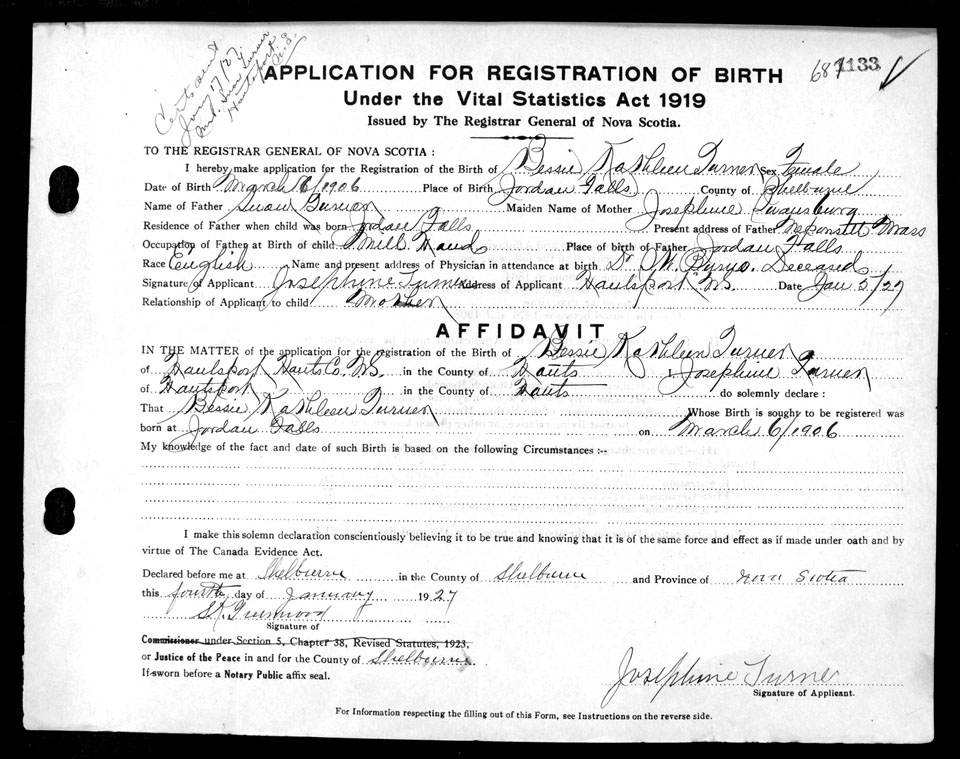 Cert sent
Jany 17/27
Mrs. Swan Turner
Hantsport
N.S.
APPLICATION FOR REGISTRATION OF BIRTH 687 1133
Under the Vital Statistics Act 1919
Issued by The Registrar General of Nova Scotia.
TO THE REGISTRAR GENERAL OF NOVA SCOTIA :
I hereby make application for the Registration of the Birth of Bessie Kathleen Turner Sex Female
Date of Birth March 6/1906 Place of Birth Jordan Falls County of Shelburne
Name of Father Swan Turner Maiden Name of Mother Josephine Swansburg
Residence of Father when child was born Jordan Falls Present address of Father Mass
Occupation of Father at Birth of child Mill Hand Place of birth of Father Jordan Falls
Race English Name and present address of Physician in attendance at birth Dr Deceased
Signature of Applicant Josephine Turner Address of Applicant Hantsport N.S. Date Jan 5/27
Relationship of Applicant to child Mother
AFFIDAVIT
IN THE MATTER of the application for the registration of the Birth of Bessie Kathleen Turner
of Hantsport Hants Co. N.S. in the County of Hants I, Josephine Turner
of Hantsport in the County of Hants do solemnly declare :
That Bessie Kathleen Turner Whose Birth is sought to be registered was
born at Jordan Falls on March 6/1906
My knowledge of the fact and date of such Birth is based on the following Circumstances :-
I make this solemn declaration conscientiously believing it to be true and knowing that it is of the same force and effect as if made under oath and by
virtue of The Canada Evidence Act.
Declared before me at Shelburne in the County of Shelburne and Province of Nova Scotia
this fourth day of January 1927
Signature of
Commissioner under Section 5, Chapter 38, Revised Statutes, 1923,
or Justice of the Peace in and for the County of Shelburne
If sworn before a Notary Public affix seal.
Josephine Turner
Signature of Applicant.
For Information respecting the filling out of this Form, see Instructions on the reverse side.